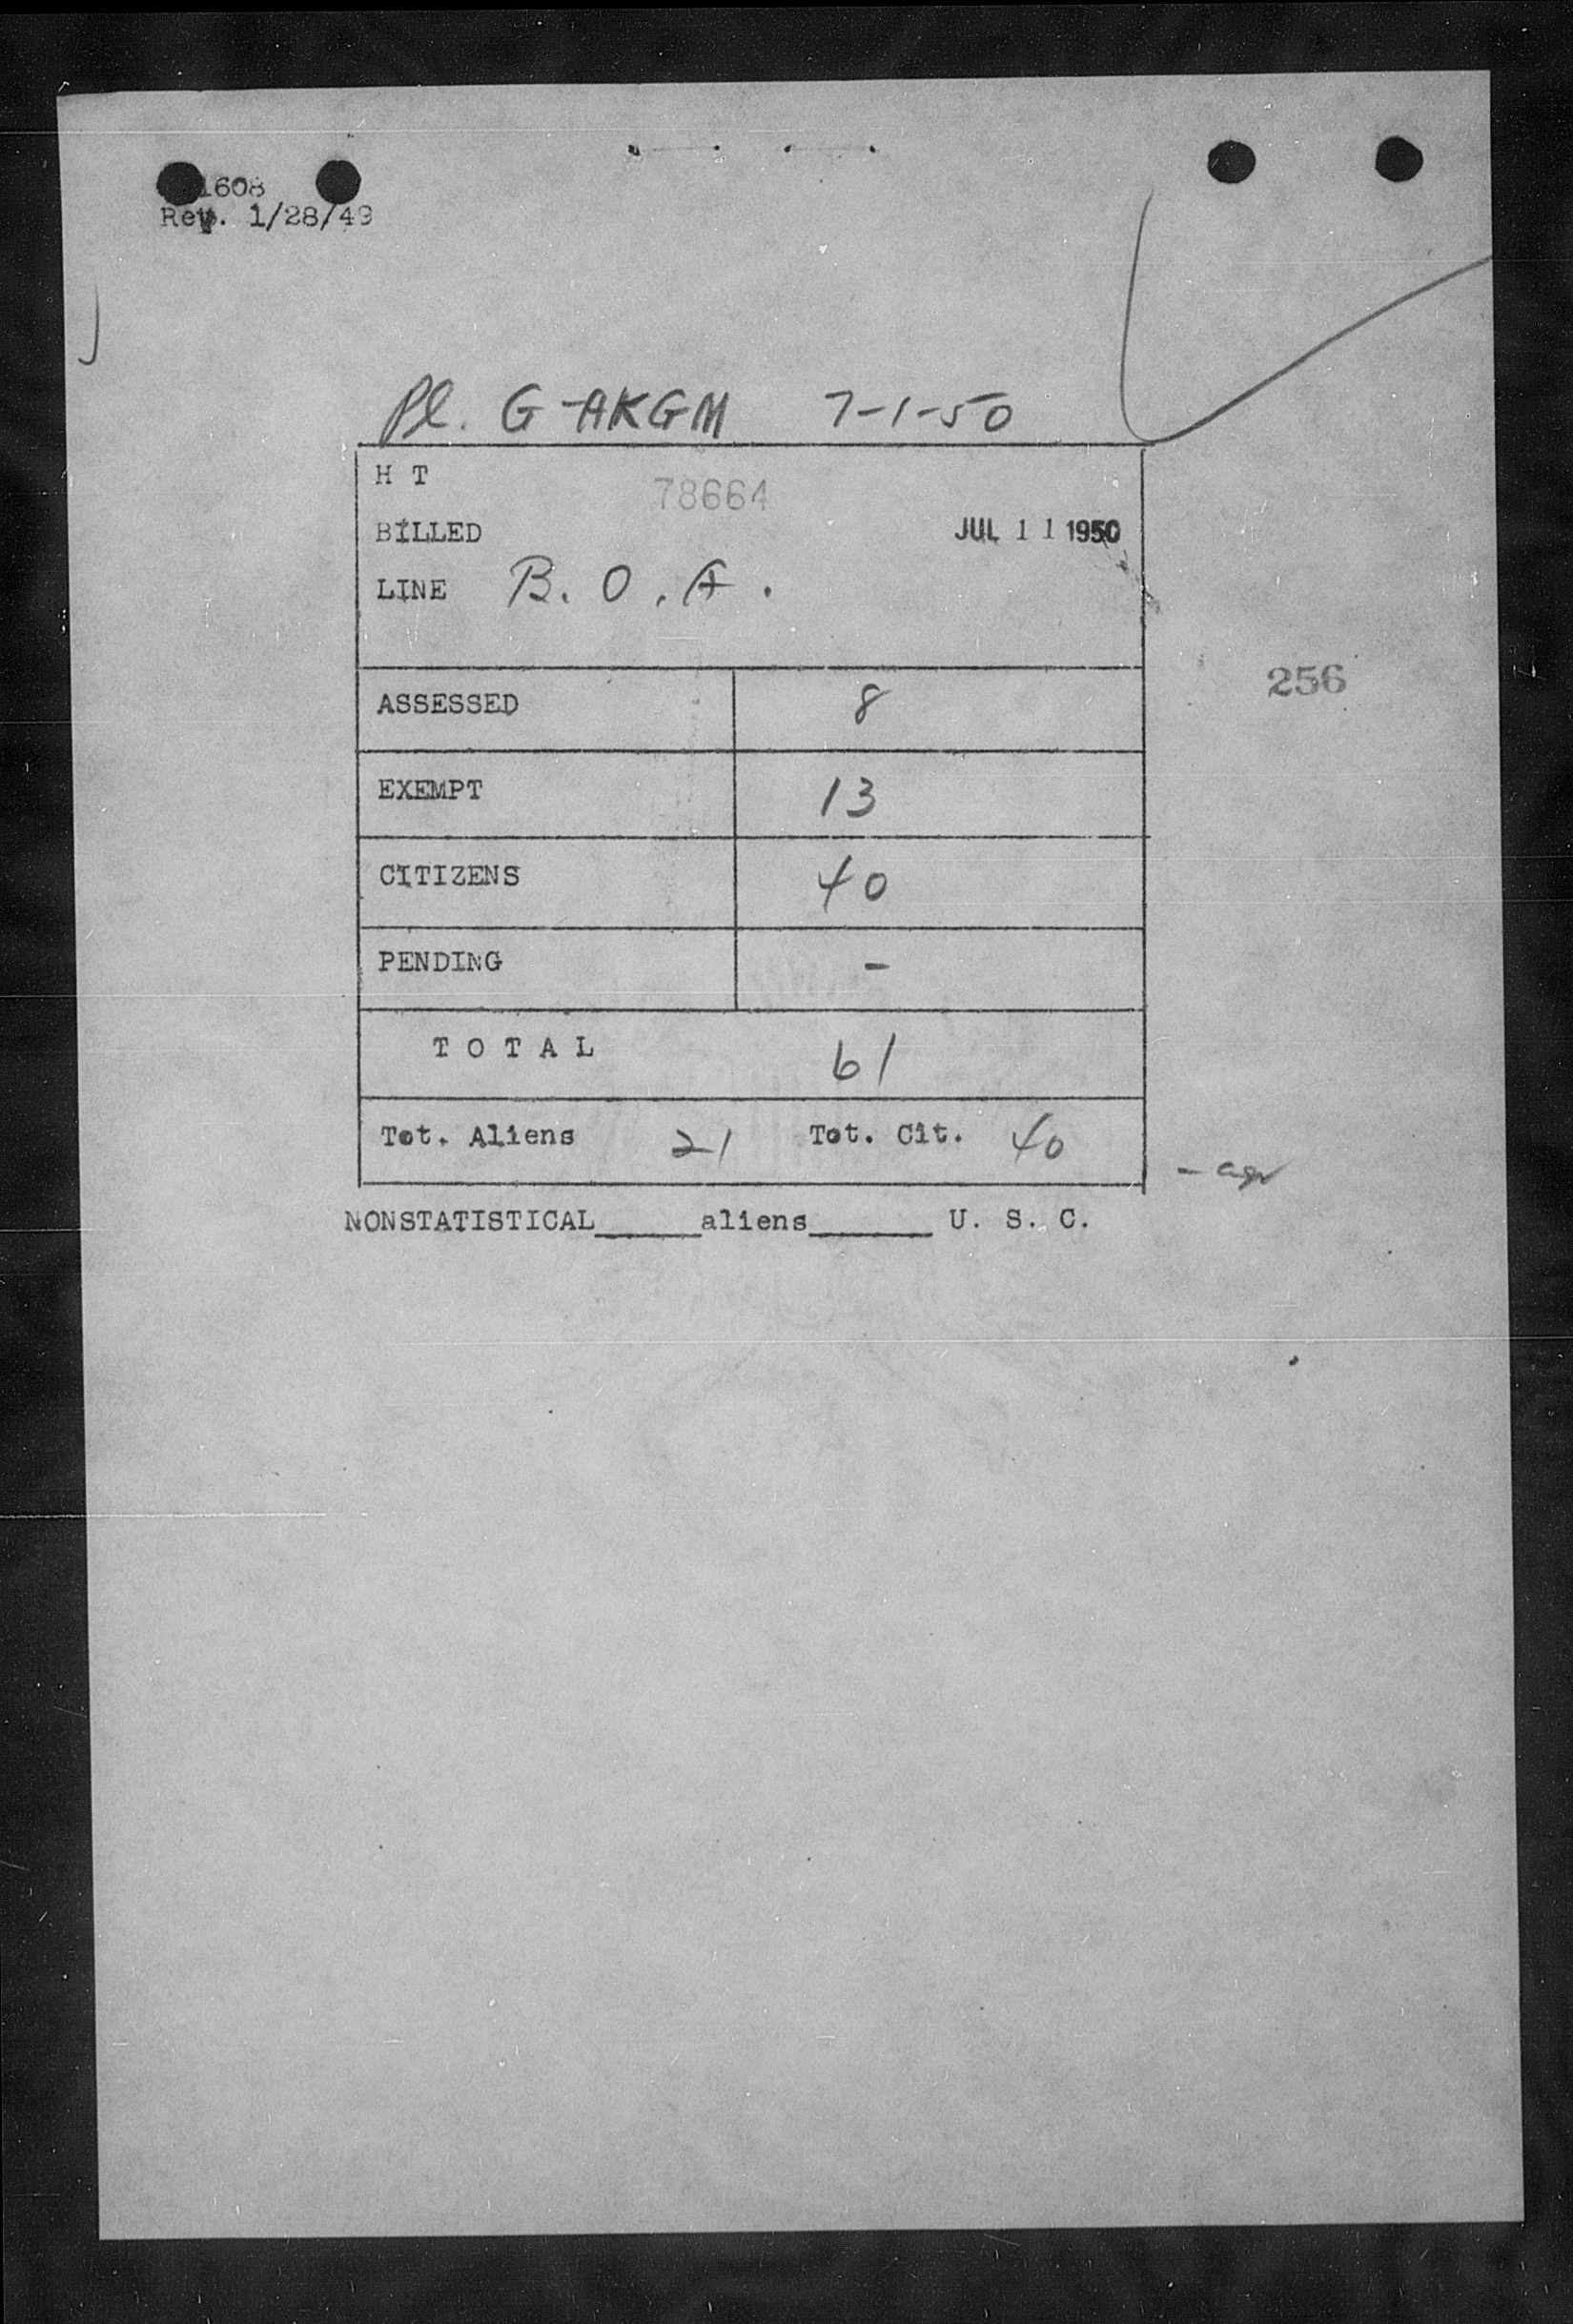 1608
Rev. 1/28/49
Pl. G-AKGM 7-1-50
H T
78664
BILLED JUL 11 1950
LINE B.O.A.
256
ASSESSED 8
EXEMPT 13
CITIZENS 40
PENDING -
T O T A L 61
Tot. Aliens 21 Tot. Cit. 40
NONSTATISTICAL_____aliens______ U. S. C.